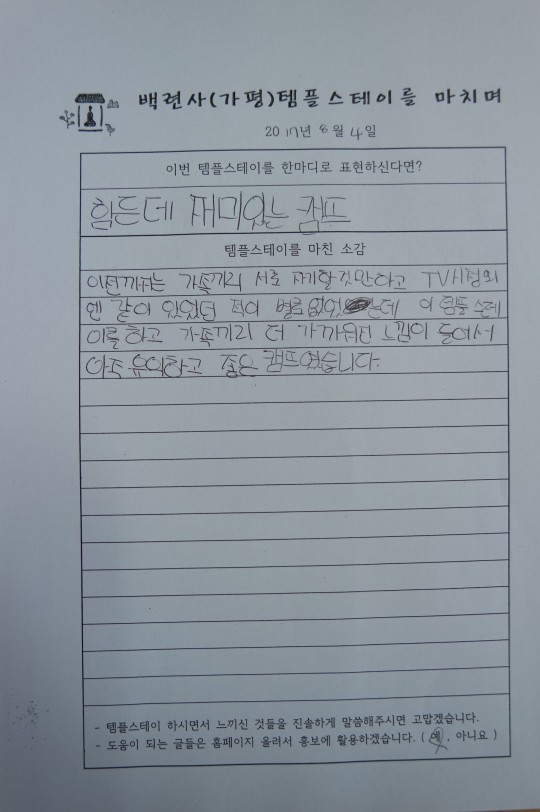 백련사(가평)템플스테이를 마치며
2017년 8월 4일
이번 템플스테이를 한마디로 표현하신다면?
힘든데 재미있는 캠프
템플스테이를 마친 소감
이전까지는 가족끼리 서로 자기할것만하고 TV시청외
엔 같이 있었던 적이 별로없었는데 이 템플스테
이를 하고 가족끼리 더 가까워진 느낌이 들어서
아주 유익하고 좋은 캠프였습니다.
- 템플스테이 하시면서 느끼신 것들을 진솔하게 말씀해주시면 고맙겠습니다.
- 도움이 되는 글들은 홈페이지 올려서 홍보에 활용하겠습니다. ( 예, 아니요 )